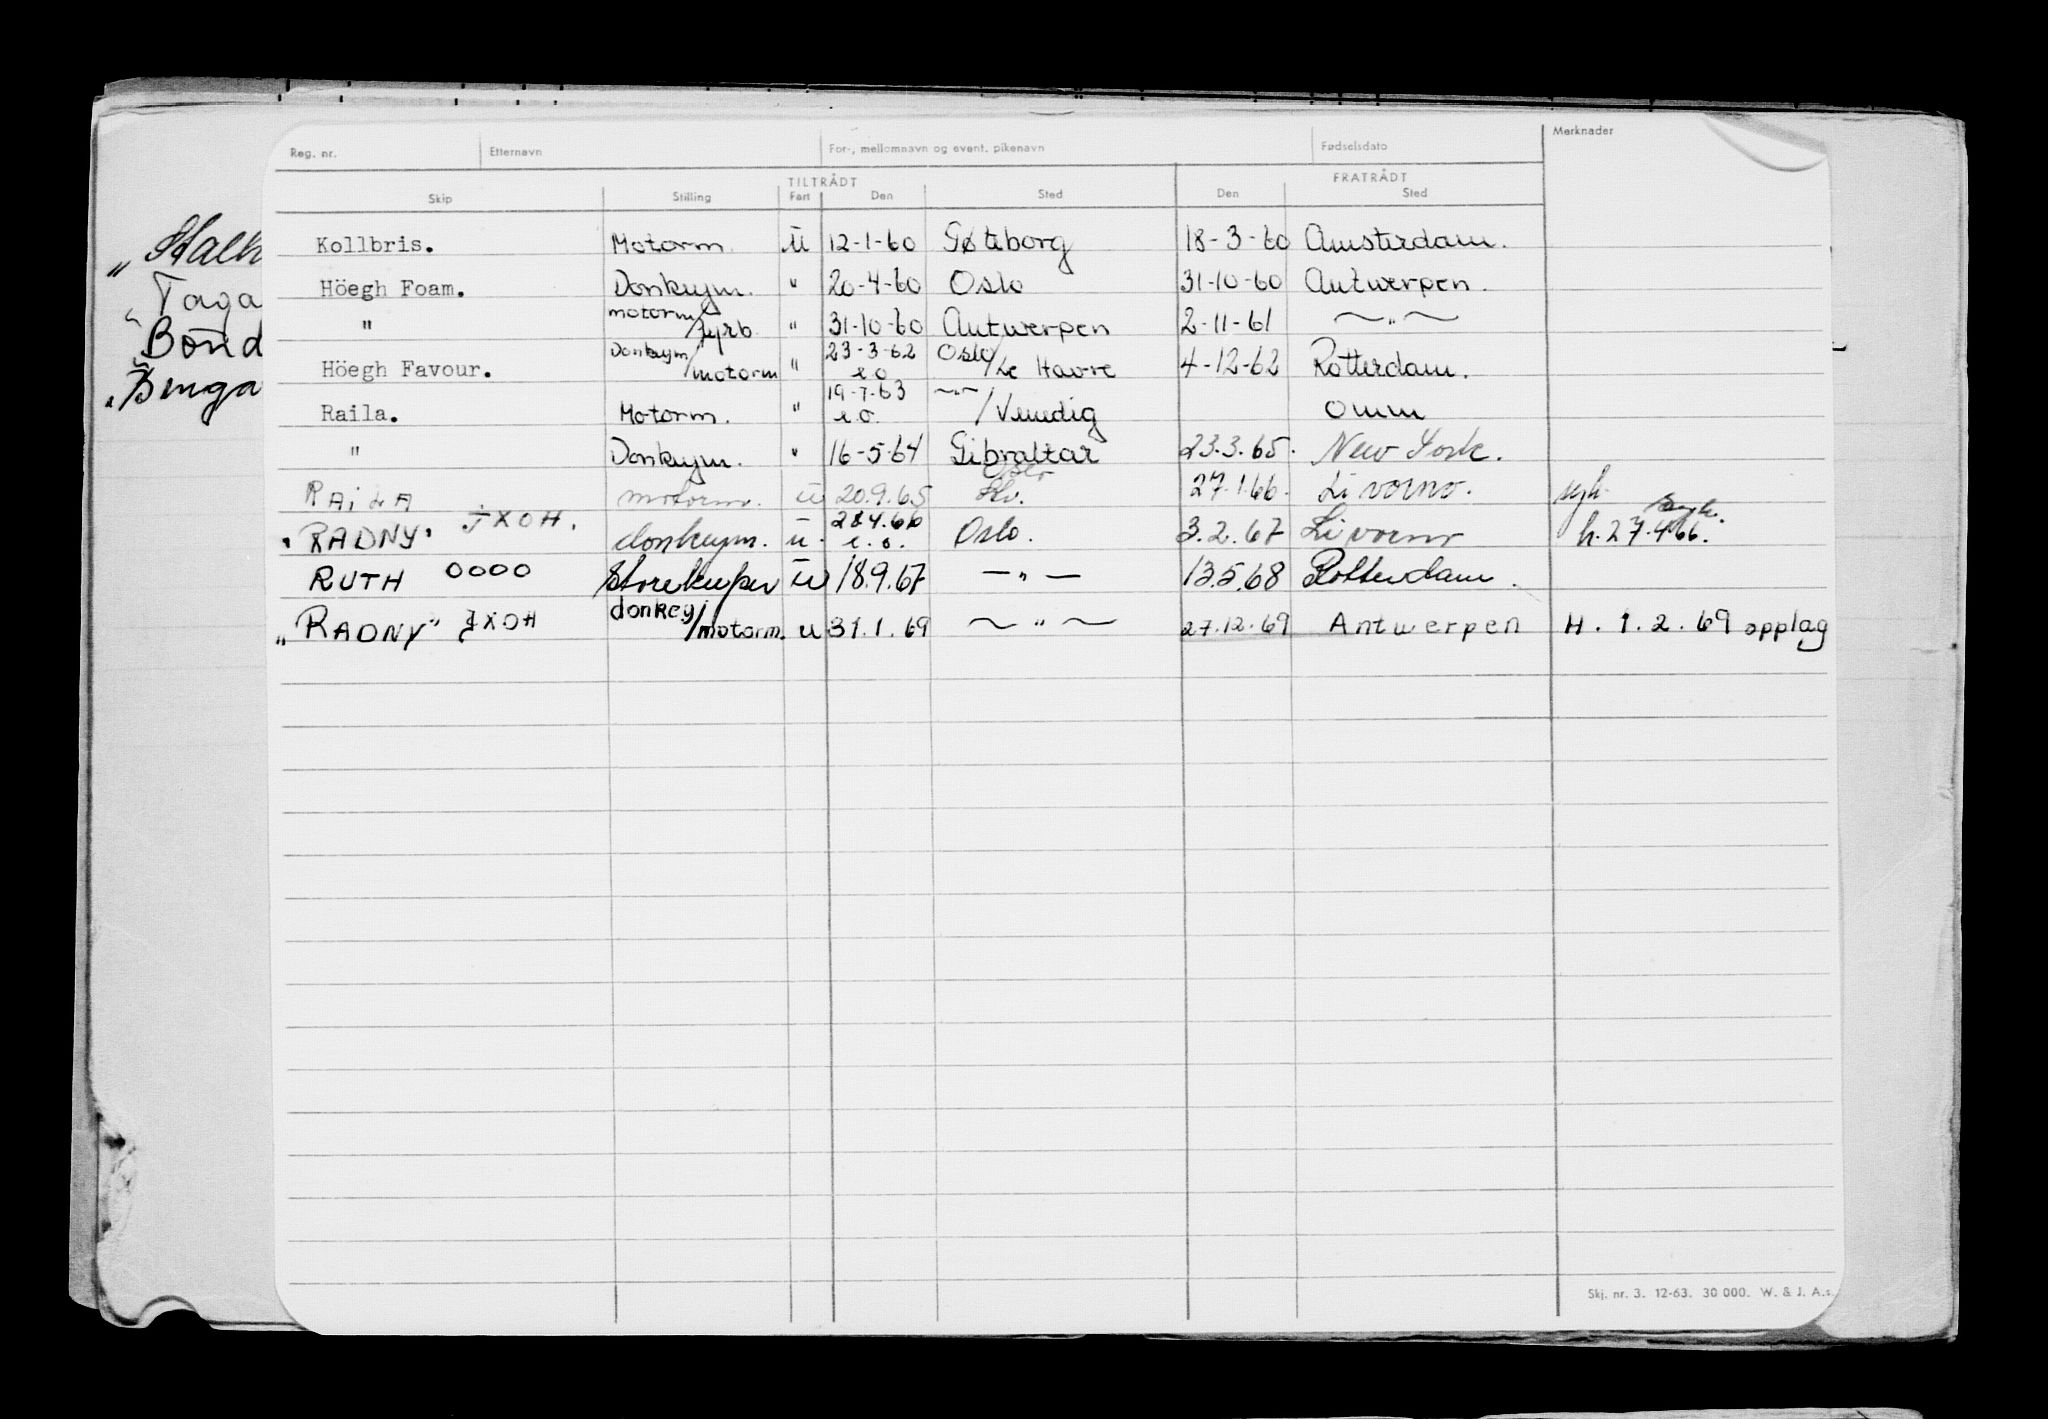 Reg. nr. Etternavn For-, mellomnavn og event. pikenavn Fødselsdato Merknader
TILTRÅDT FRATRÅDT
Skip Stilling Fart Den Sted Den Sted
Kollbris. Motorm. u 12-1-60 Gøteborg 18-3-60 Amsterdam.
Höegh Foam. Donkeym. " 20-4-60 Oslo 31-10-60 Antwerpen.
" motorm/fyrb. " 31-10-60 Antwerpen 2-11-61 — " —
Höegh Favour. Donkeym/motorm " 23-3-62 e.o Oslo/Le Havre 4-12-62 Rotterdam.
Raila. Motorm. " 19-7-63 e.o. — " — /Venedig omm
" Donkeym. " 16-5-64 Gibraltar 23.3.65. New York.
RAILA motorm. u 20.9.65 Oslo 27.1.66. Livorno. syk.
"RADNY" JXOH. donkeym. u. 28.4.66 e.o. Oslo. 3.2.67 Livorno h.27.4.66.
RUTH OOOO Storekeeper u 18.9.67 — " — 13.5.68 Rotterdam.
"RADNY" JXOH donkey/motorm. u 31.1.69 — " — 27.12.69 Antwerpen H. 1.2.69 opplag
"Stalh
"Taga
Bond
"Benga
Skj. nr. 3. 12-63. 30 000. W. & J. A.s.